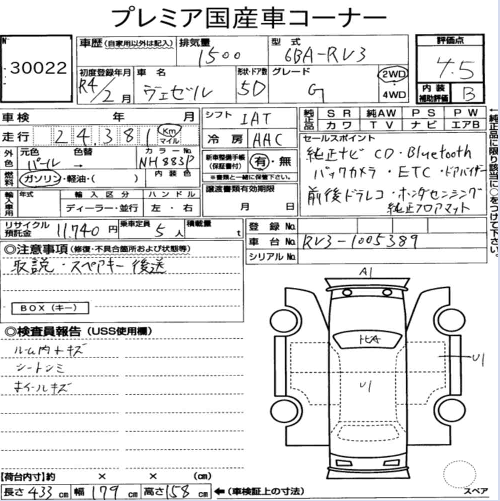 プレミア国産車コーナー
No 30022
車歴 (自家用以外は記入) 排気量 1500 型式 6BA-RV3 評価点 4.5
初度登録年月 R4/2月 車名 ヴェゼル 形状・ドア数 5D グレード G 2WD 4WD 内装補助評価 B
車検 年 月 シフト IAT 純正品 SR 純AW PS PW カワ TV ナビ エアB
走行 24,381 km マイル 冷房 AAC セールスポイント
外色 元色 パール 色替 カラーNo. NH883P 新車整備手帳(保証書付) 有・無 ※書類と一緒に提出 純正ナビ CD・Bluetooth
燃料 ガソリン・軽油・( ) 内装色 バックカメラ・ETC・ドアバイザー
輸入車用 年式 輸入区分 ディーラー・並行 ハンドル 左・右 譲渡書類有効期限 月 日 前後ドラレコ・ホンダセンシング
純正フロアマット
←純正品に限り該当に○をつけて下さい。
リサイクル預託金 11740円 乗車定員 5人 積載量 t 登録No.
車台No. RV3-1005389
シリアルNo.
◎注意事項 (修復・不具合箇所および状態等)
取説・スペアキー後送
BOX(キー)
◎検査員報告 (USS使用欄)
ルーム内キズ
シートシミ
ホイールキズ
A1
U1
U1
【荷台内寸】 長さ × 幅 × 高さ (cm)
長さ 433 cm 幅 179 cm 高さ 158 cm ←(車検証上の寸法)
スペア